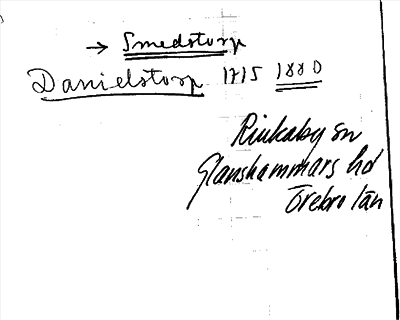 → Smedstorp
Danielstorp 1715 1880
Rinkaby sn
Glanshammars hd
Örebro län